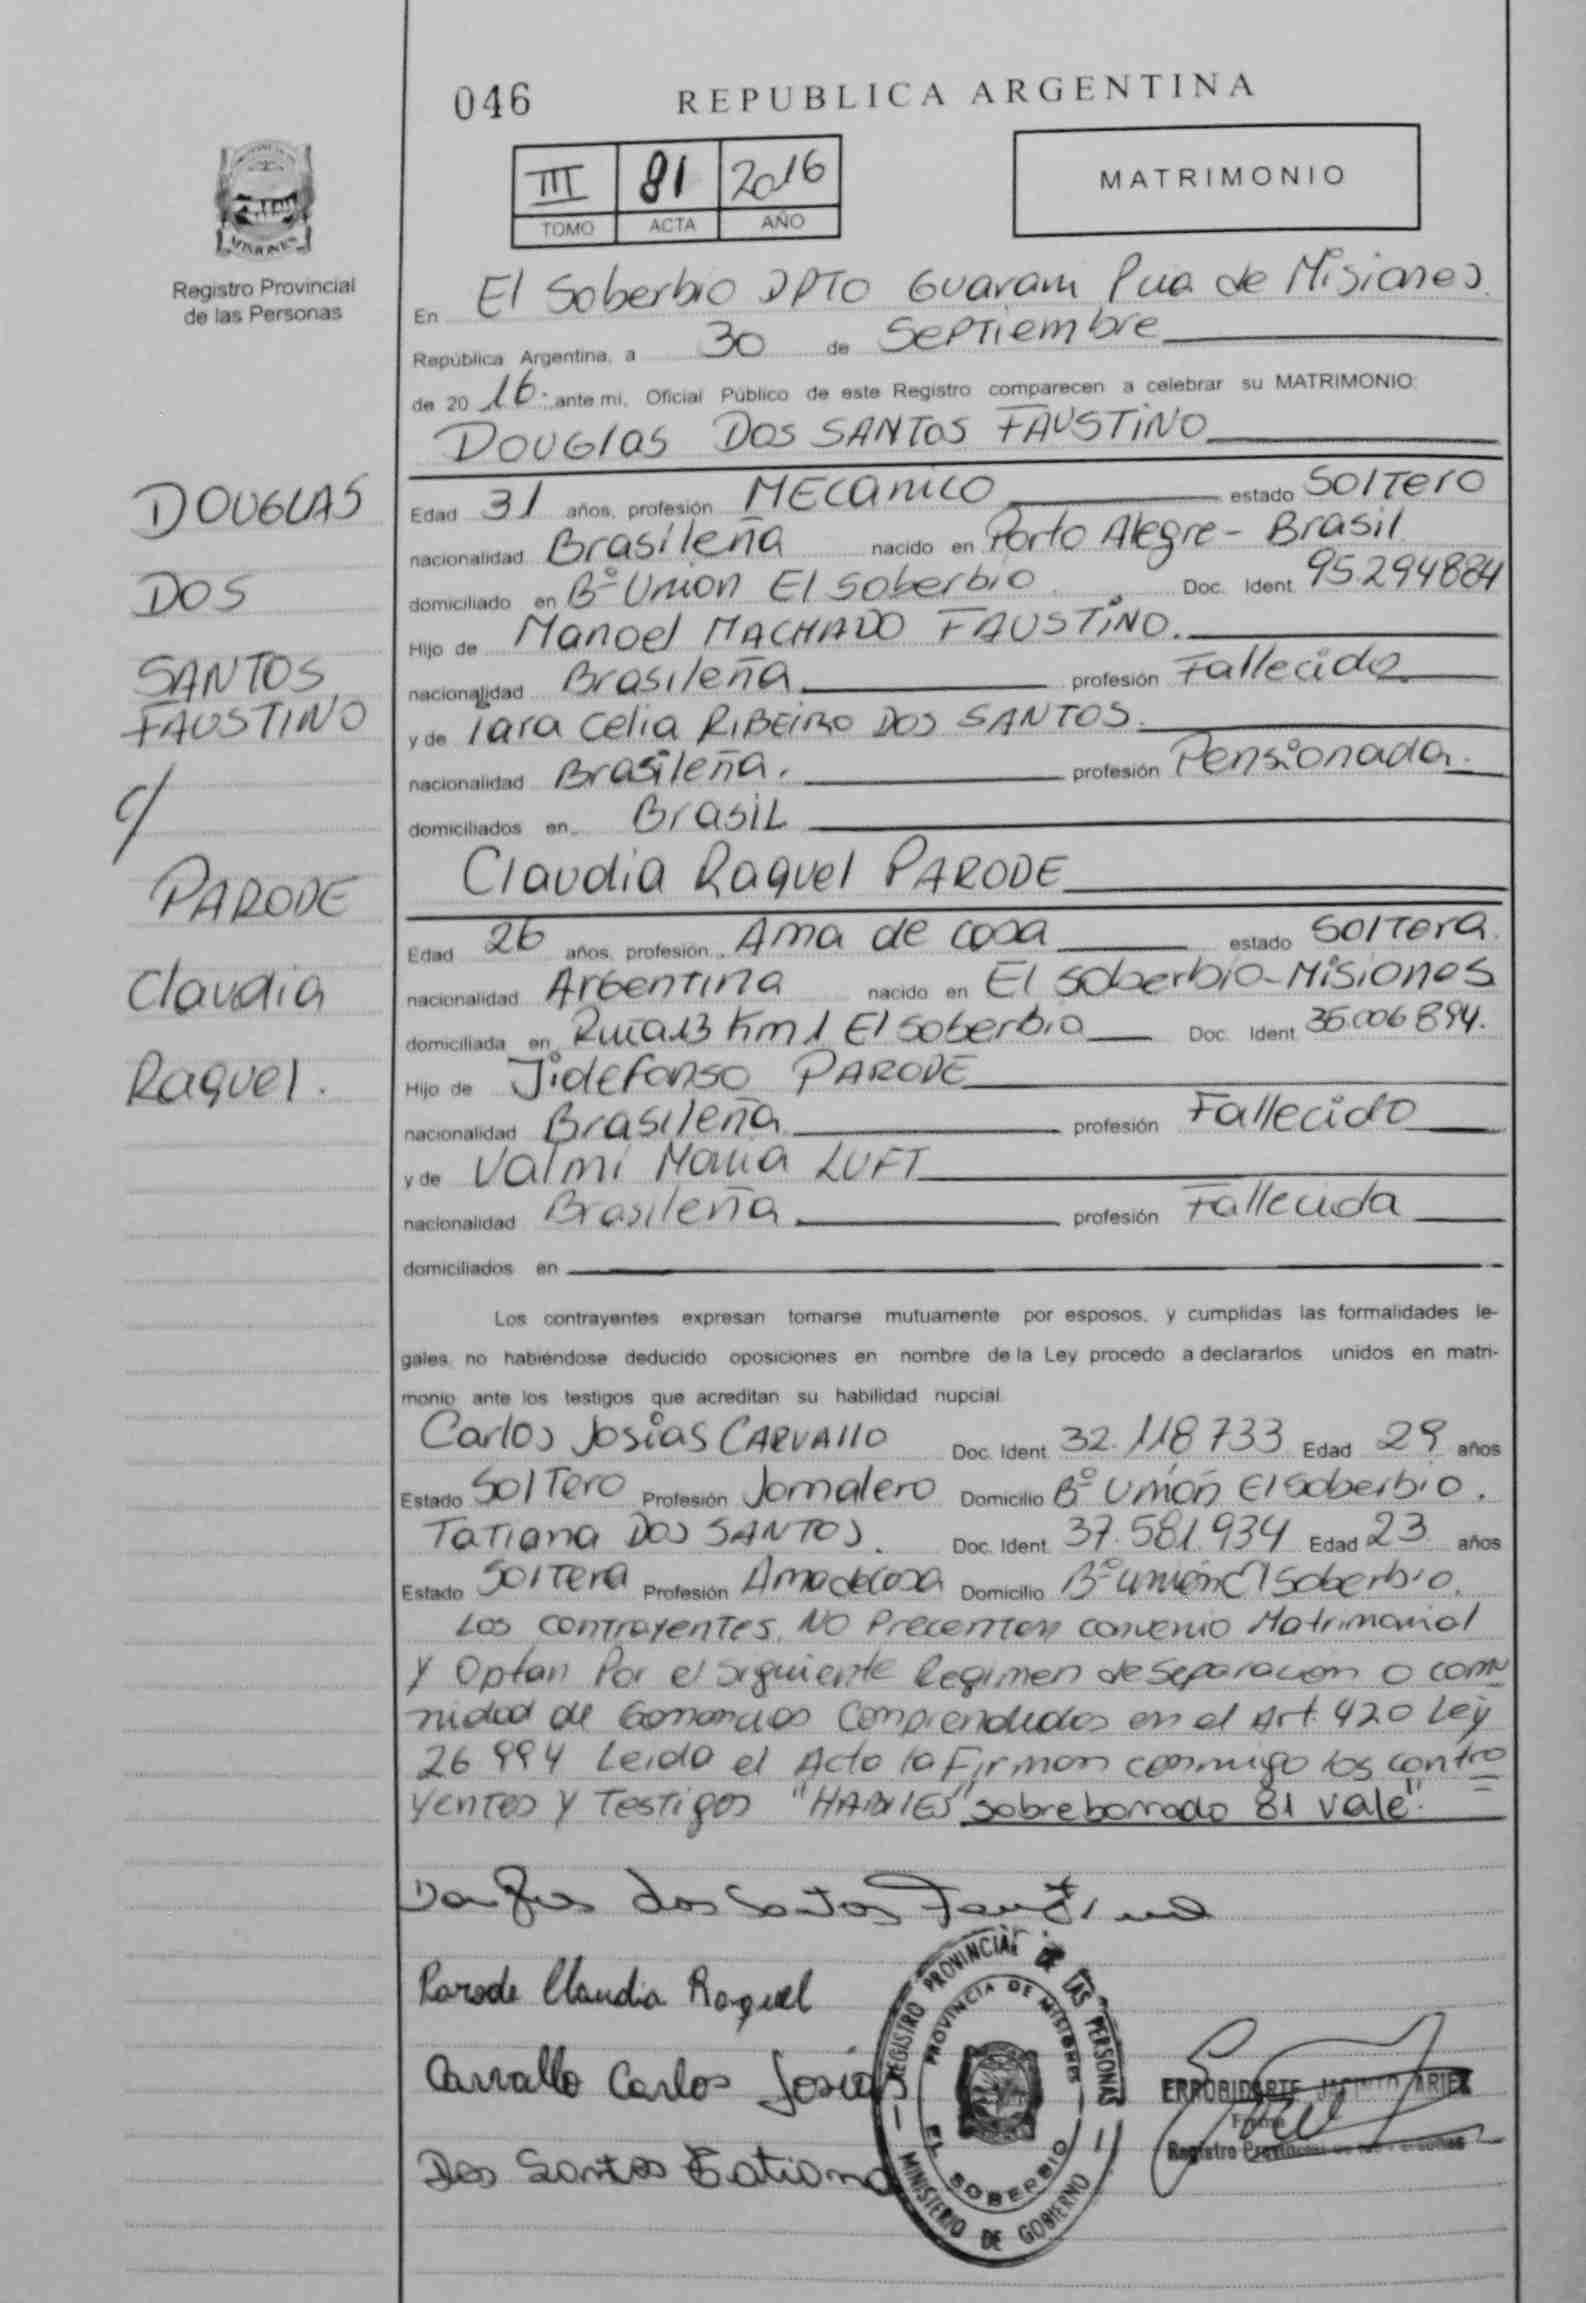 046 REPUBLICA ARGENTINA
III 81 2016
TOMO ACTA AÑO
MATRIMONIO
MISIONES
Registro Provincial
de las Personas
En El Soberbio DPTO Guarani Pcia de Misiones
República Argentina, a 30 de Septiembre
de 20 16 ante mi, Oficial Público de este Registro comparecen a celebrar su MATRIMONIO:
Douglas Dos SANTOS FAUSTINO
DOUGLAS
DOS
SANTOS
FAUSTINO
c/
PARODE
Claudia
Raquel.
Edad 31 años, profesión MECANICO estado SOLTERO
nacionalidad Brasileña nacido en Porto Alegre - Brasil
domiciliado en Bº Union El Soberbio Doc. Ident. 95.294884
Hijo de Manoel MACHADO FAUSTINO.
nacionalidad Brasileña profesión Fallecido
y de Iara Celia RIBEIRO DOS SANTOS.
nacionalidad Brasileña. profesión Pensionada.
domiciliados en Brasil
Claudia Raquel PARODE
Edad 26 años, profesión Ama de casa estado Soltera.
nacionalidad Argentina nacido en El Soberbio-Misiones
domiciliada en Ruta 13 Km 1 El Soberbio Doc. Ident. 35.006894.
Hijo de Jidefonso PARODE
nacionalidad Brasileña profesión Fallecido
y de Valmi Maria LUFT
nacionalidad Brasileña profesión Fallecida
domiciliados en
Los contrayentes expresan tomarse mutuamente por esposos, y cumplidas las formalidades le-
gales, no habiéndose deducido oposiciones en nombre de la Ley procedo a declararlos unidos en matri-
monio ante los testigos que acreditan su habilidad nupcial.
Carlos Josias CARVALLO Doc. Ident. 32.118733 Edad 29 años
Estado Soltero Profesión Jornalero Domicilio Bº Unión El Soberbio.
Tatiana DOS SANTOS. Doc. Ident. 37.581.934 Edad 23 años
Estado Soltera Profesión Ama de casa Domicilio Bº Unión El Soberbio.
Los contrayentes, NO Precentan convenio Matrimonial
y Optan Por el siguiente Regimen de Separacion o comu
nidad de Ganancias Comprendidos en el Art 420 Ley
26 994 Leida el Acta la Firman conmigo los contra
yentes y Testigos "HABILES" sobreborrado 81 Vale".
Douglas dos Santos Faustino
Parode Claudia Raquel
Carvallo Carlos Josias
Dos Santos Tatiana
REGISTRO PROVINCIAL DE LAS PERSONAS
PROVINCIA DE MISIONES
EL SOBERBIO
MINISTERIO DE GOBIERNO
JACINTO ARIEL
Firma
Registro Provincial de las Personas